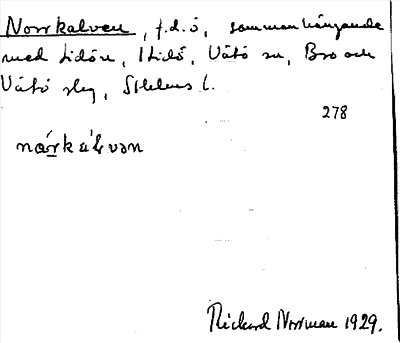 Norrkalven, f.d. ö, sammanhängande
med Lidön, Lidö, Vätö sn, Bro och
Vätö slg, Sthlms l.
278
nórkálvan
Rickard Norrman 1929.